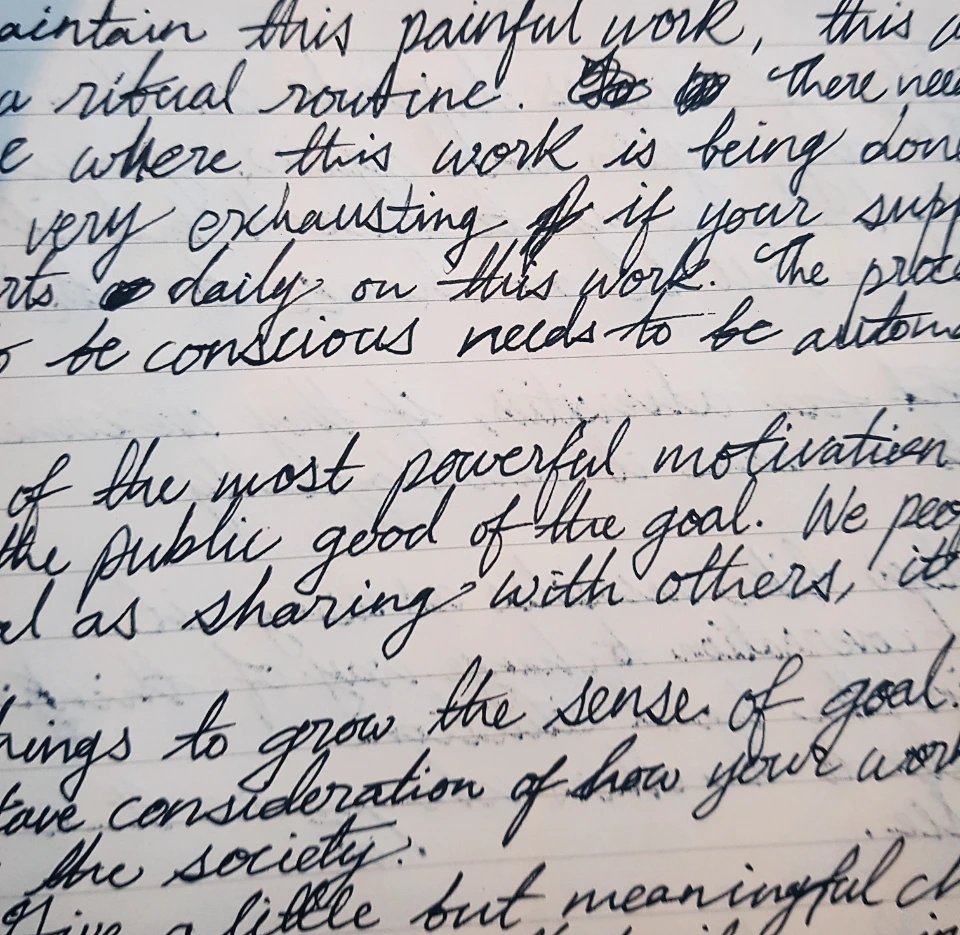 aintain this painful work, this
a ritual routine. There need
e where this work is being done
very exhausting if your supp
rts daily on this work. The proce
o be conscious needs to be automa
of the most powerful motivation
the public good of the goal. We peop
el as sharing with others, it
hings to grow the sense of goal.
tave consideration of how your work
the society.
Give a little but meaningful ch